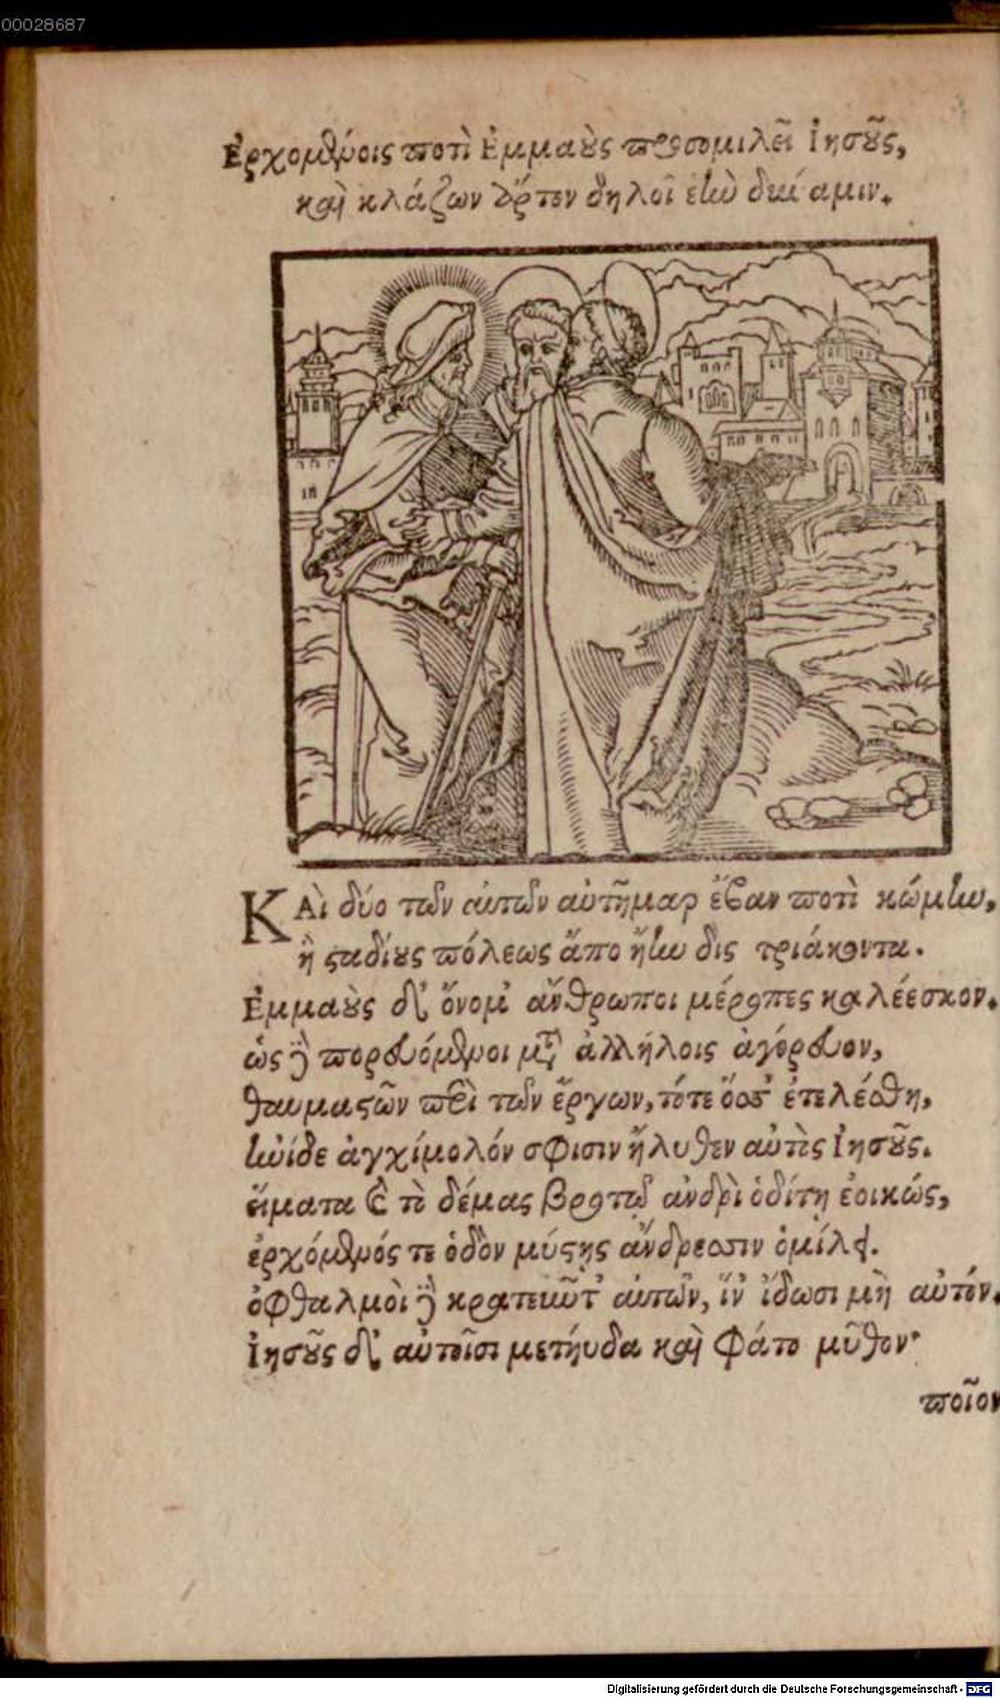 00028687
Ἐρχομένοις ποτὶ Ἐμμαοὺς προσομιλεῖ Ἰησοῦς,
καὶ κλάζων ἄρτον δηλοῖ ἑὴν δύναμιν.
ΚΑὶ δύο τῶν αὐτῶν αὐτῆμαρ ἔβαν ποτὶ κώμην,
ἣ σταδίους πόλεως ἄπο ἤην δὶς τριάκοντα.
Ἐμμαοὺς δ' ὄνομ' ἄνθρωποι μέροπες καλέεσκον.
ὡς δὲ πορευόμενοι μετ' ἀλλήλοις ἀγόρευον,
θαυμαστῶν περὶ τῶν ἔργων, τότε ὅσσ' ἐτελέσθη,
ἠνίδε ἀγχίμολόν σφισιν ἤλυθεν αὐτὶς Ἰησοῦς.
εἵματα καὶ τὸ δέμας βροτῷ ἀνδρὶ ὁδίτῃ ἐοικώς,
ἐρχόμενός τε ὁδὸν μύστης ἄνδρεσσιν ὁμίλει.
ὀφθαλμοὶ δὲ κρατεῦντ' αὐτῶν, ἵν' ἴδωσι μὴ αὐτόν.
Ἰησοῦς δ' αὐτοῖσι μετηύδα καὶ φάτο μῦθον·
ποῖον
Digitalisierung gefördert durch die Deutsche Forschungsgemeinschaft - DFG